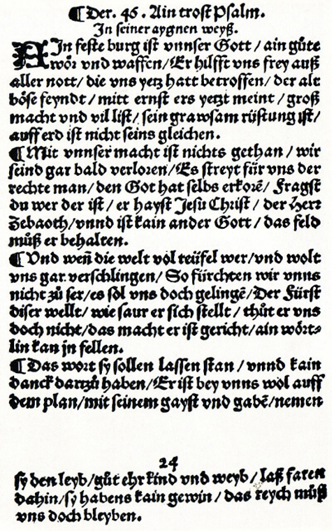 ¶ Der. 46. Ain trost Psalm.
In seiner aygnen weyß.
AIn feste burg ist vnnser Gott / ain gůte
wör vnd waffen / Er hilfft vns frey auß
aller nott / die vns yetz hatt betroffen / der alt
böse feyndt / mitt ernst ers yetzt meint / groß
macht vnd vil list / sein grawsam rüstung ist /
auff erd ist nicht seins gleichen.
¶ Mit vnnser macht ist nichts gethan / wir
seind gar bald verloren / Es streyt für vns der
rechte man / den Got hat selbs erkorẽ / Fragst
du wer der ist / er hayst Jesu Christ / der Herr
Zebaoth / vnnd ist kain ander Gott / das feld
můß er behalten.
¶ Vnd weñ die welt vol teüfel wer / vnd wolt
vns gar verschlingen / So fürchten wir vnns
nicht zů ser / es sol vns doch gelingẽ / Der Fürst
diser wellt / wie saur er sich stellt / thůt er vns
doch nicht / das macht er ist gericht / ain wört-
lin kan jn fellen.
¶ Das wort sy sollen lassen stan / vnnd kain
danck dartzů haben / Er ist bey vnns wol auff
dem plan / mit seinem gayst vnd gabẽ / nemen
24
sy den leyb / gůt ehr kind vnd weyb / laß faren
dahin / sy habens kain gewin / das reych můß
vns doch bleyben.